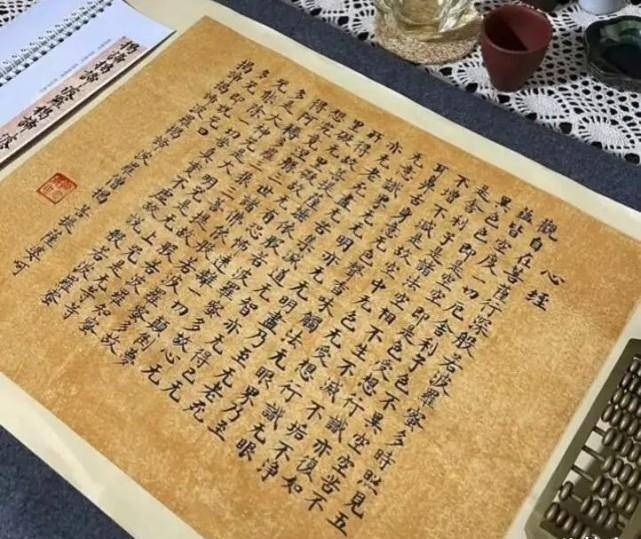 心經
觀自在菩薩行深般若波羅蜜多時照見五
蘊皆空度一切苦厄舍利子色不異空空不
異色色即是空空即是色受想行識亦復如
是舍利子是諸法空相不生不滅不垢不淨
不增不減是故空中无色无受想行識无眼
耳鼻舌身意无色聲香味觸法无眼界乃至
无意識界无无明亦无无明盡乃至无老死
亦无老死盡无苦集滅道无智亦无得以无
所得故菩提薩埵依般若波羅蜜多故心无
罣礙无罣礙故无有恐怖遠離顛倒夢
想究竟涅槃三世諸佛依般若波羅蜜多故
得阿耨多羅三藐三菩提故知般若波羅蜜
多是大神咒是大明咒是无上咒是无等等
咒能除一切苦真實不虛故說般若波羅蜜
多咒即說咒曰
揭諦揭諦波羅揭諦波羅僧揭諦菩提薩婆訶
揭諦揭諦波羅揭諦波